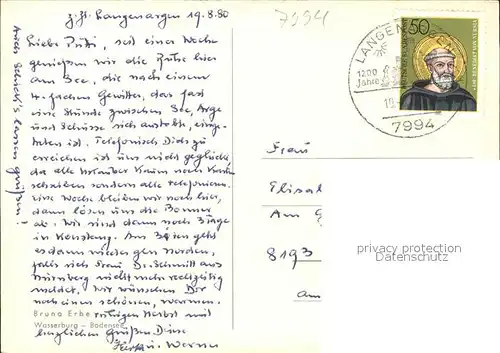 z.Zt. Langenargen 19.8.80
7994
Liebe Putzi, seit einer Woche
genießen wir die Ruhe hier
am See, die nach einem
4-fachen Gewitter, das fast
eine Stunde zwischen See, Argen
und Schussen sich austobte, einge-
treten ist. Telefonisch Dich zu
erreichen ist uns nicht geglückt,
da alle Urlauber kaum noch Karten
schreiben sondern alle telefonieren.
Eine Woche bleiben wir noch hier,
dann lösen uns die Bonner
ab. Wir sind dann noch 3 Tage
in Konstanz. Am 30ten geht
es dann wieder gen Norden,
falls sich Frau Dr. Schmitt aus
Nürnberg nicht mehr rechtzeitig
meldet. Wir wünschen Dir
noch einen schönen, warmen,
ruhigen Herbst mit
herzlichen Grüßen Deine
u. Werner
lassen grüßen!
Bruno Erbe
Wasserburg – Bodensee
LANGEN
1200
Jahre
7994
50
Frau
Elisa
Am
8193
am
propriety protection
Datenschutz